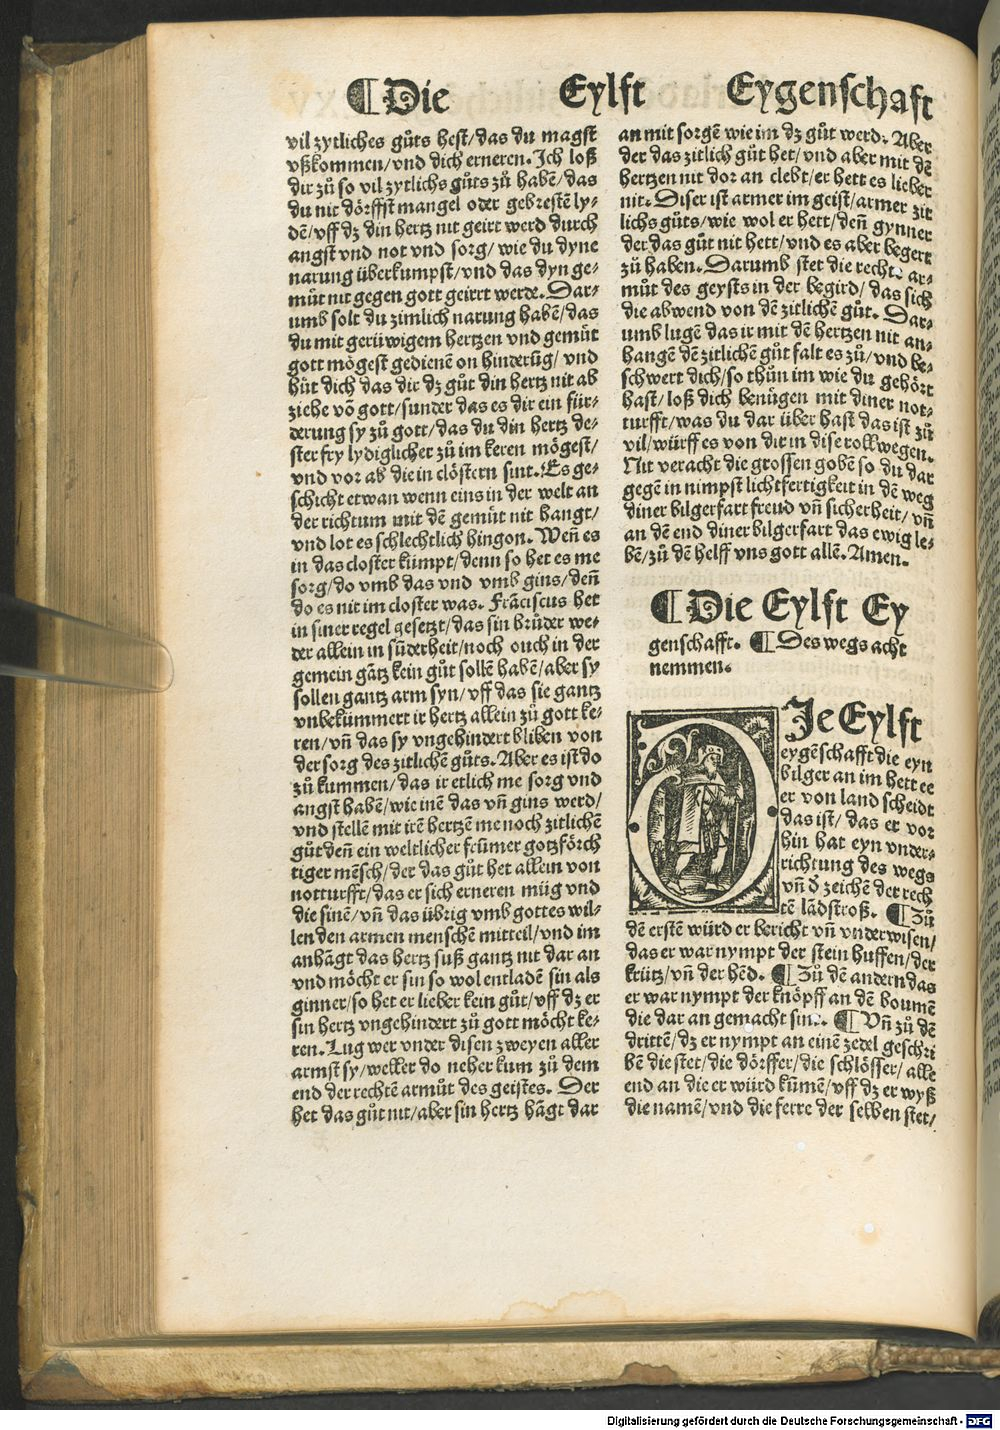 ¶Die Eylft Eygenschaft
vil zytliches gůts hest/das du magst
vßkommen/vnd dich erneren. Ich loß
dir zů so vil zytlichs gůts zů habē/das
du nit dörffst mangel oder gebrestē ly-
dē/vff dz din hertz nit geirt werd durch
angst vnd not vnd sorg/ wie du dyne
narung überkumpst/vnd das dyn ge-
müt nit gegen gott geirrt werde. Dar-
umb solt du zimlich narung habē/das
du mit gerüwigem hertzen vnd gemüt
gott mögest gedienē on hinderūg/ vnd
hüt dich das dir dz gůt din hertz nit ab
ziehe vō gott/sunder das es dir ein für-
derung sy zů gott/das du din hertz de-
ster fry lydiglicher zů im keren mögest/
vnd vor ab die in clöstern sint. Es ge-
schicht etwan wenn eins in der welt an
der richtum mit dē gemüt nit hangt/
vnd lot es schlechtlich hingon. Wen̄ es
in das closter kumpt/denn so het es me
sorg/do vmb das vnd vmb gins/den̄
do es nit im closter was. Frāciscus het
in siner regel gesetzt/das sin brůder we-
der allein in sūderheit/noch ouch in der
gemein gātz kein gůt sollē haben/aber sy
sollen gantz arm syn/vff das sie gantz
vnbekümmert ir hertz allein zů gott ke-
ren/vn̄ das sy vngehindert bliben von
der sorg des zitlichē gůts. Aber es ist do
zů kummen/das ir etlich me sorg vnd
angst habē/wie inē das vn̄ gins werd/
vnd stellē mit irē hertzē me noch zitlichē
gůt den̄ ein weltlicher frūmer gotzförch
tiger mēsch/der das gůt het allein von
notturfft/das er sich erneren müg vnd
die sinē/vn̄ das übrig vmb gottes wil-
len den armen menschē mitteil/vnd im
anhāgt das hertz suß gantz nit dar an
vnd möcht er sin so wol entladē sin als
ginner/so het er lieber kein gůt/vff dz er
sin hertz vngehindert zů gott möcht ke-
ren. Lug wer vnder disen zweyen aller
armst sy/weller do neher kum zů dem
end der rechtē armůt des geistes. Der
het das gůt nit/aber sin hertz hāgt dar
an mit sorgē wie im dz gůt werd. Aber
der das zitlich gůt het/vnd aber mit dē
hertzen nit dor an clebt/er hett es lieber
nit. Diser ist armer im geist/armer zit
lichs gůts/wie wol er hett/den̄ gynner
der das gůt nit hett/vnd es aber begert
zů haben. Darumb stet die recht ar-
můt des geysts in der begird/das sich
die abwend von dē zitlichē gůt. Dar-
umb lugē das ir mit dē hertzen nit an-
hangē dē zitlichē gůt falt es zů/vnd be-
schwert dich/so thůn im wie du gehört
hast/ loß dich benügen mit diner not-
turfft/was du dar über hast das ist zů
vil/würff es von dir in dise rollwegen.
Nit veracht die grossen gobē so du dar
gegē in nimpst lichtfertigkeit in dē weg
diner bilgerfart freud vn̄ sicherheit/vn̄
an dē end diner bilgerfart das ewig le-
bē/zů dē helff vns gott allē. Amen.
¶Die Eylft Ey
genschafft. ¶Des wegs acht
nemmen.
DJe Eylft
eygēschafft die eyn
bilger an im hett ee
er von land scheidt
das ist/ das er vor
hin hat eyn vnder-
richtung des wegs
vn̄ d̄ zeichē der rech
tē lādstroß. ¶Zů
dē erstē würd er bericht vn̄ vnderwisen/
das er war nympt der stein huffen/der
krütz/vn̄ der hēd. ¶Zů dē andern das
er war nympt der knöpff an dē boumē
die dar an gemacht sint. ¶Vn̄ zů dē
drittē/dz er nympt an einē zedel geschri
bē die stet/die dörffer/die schlösser/ alle
end an die er würd kūmē/vff dz er wyß
die namē/vnd die ferre der selben stet/
Digitalisierung gefördert durch die Deutsche Forschungsgemeinschaft - DFG